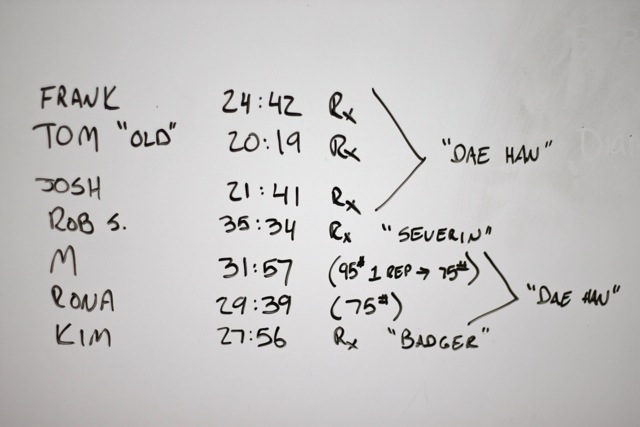 FRANK 24:42 Rx
TOM "OLD" 20:19 Rx "DAE HAN"
JOSH 21:41 Rx
ROB S. 35:34 Rx "SEVERIN"
M 31:57 (95# 1 REP → 75#)
RONA 29:39 (75#) "DAE HAN"
KIM 27:56 Rx "BADGER"